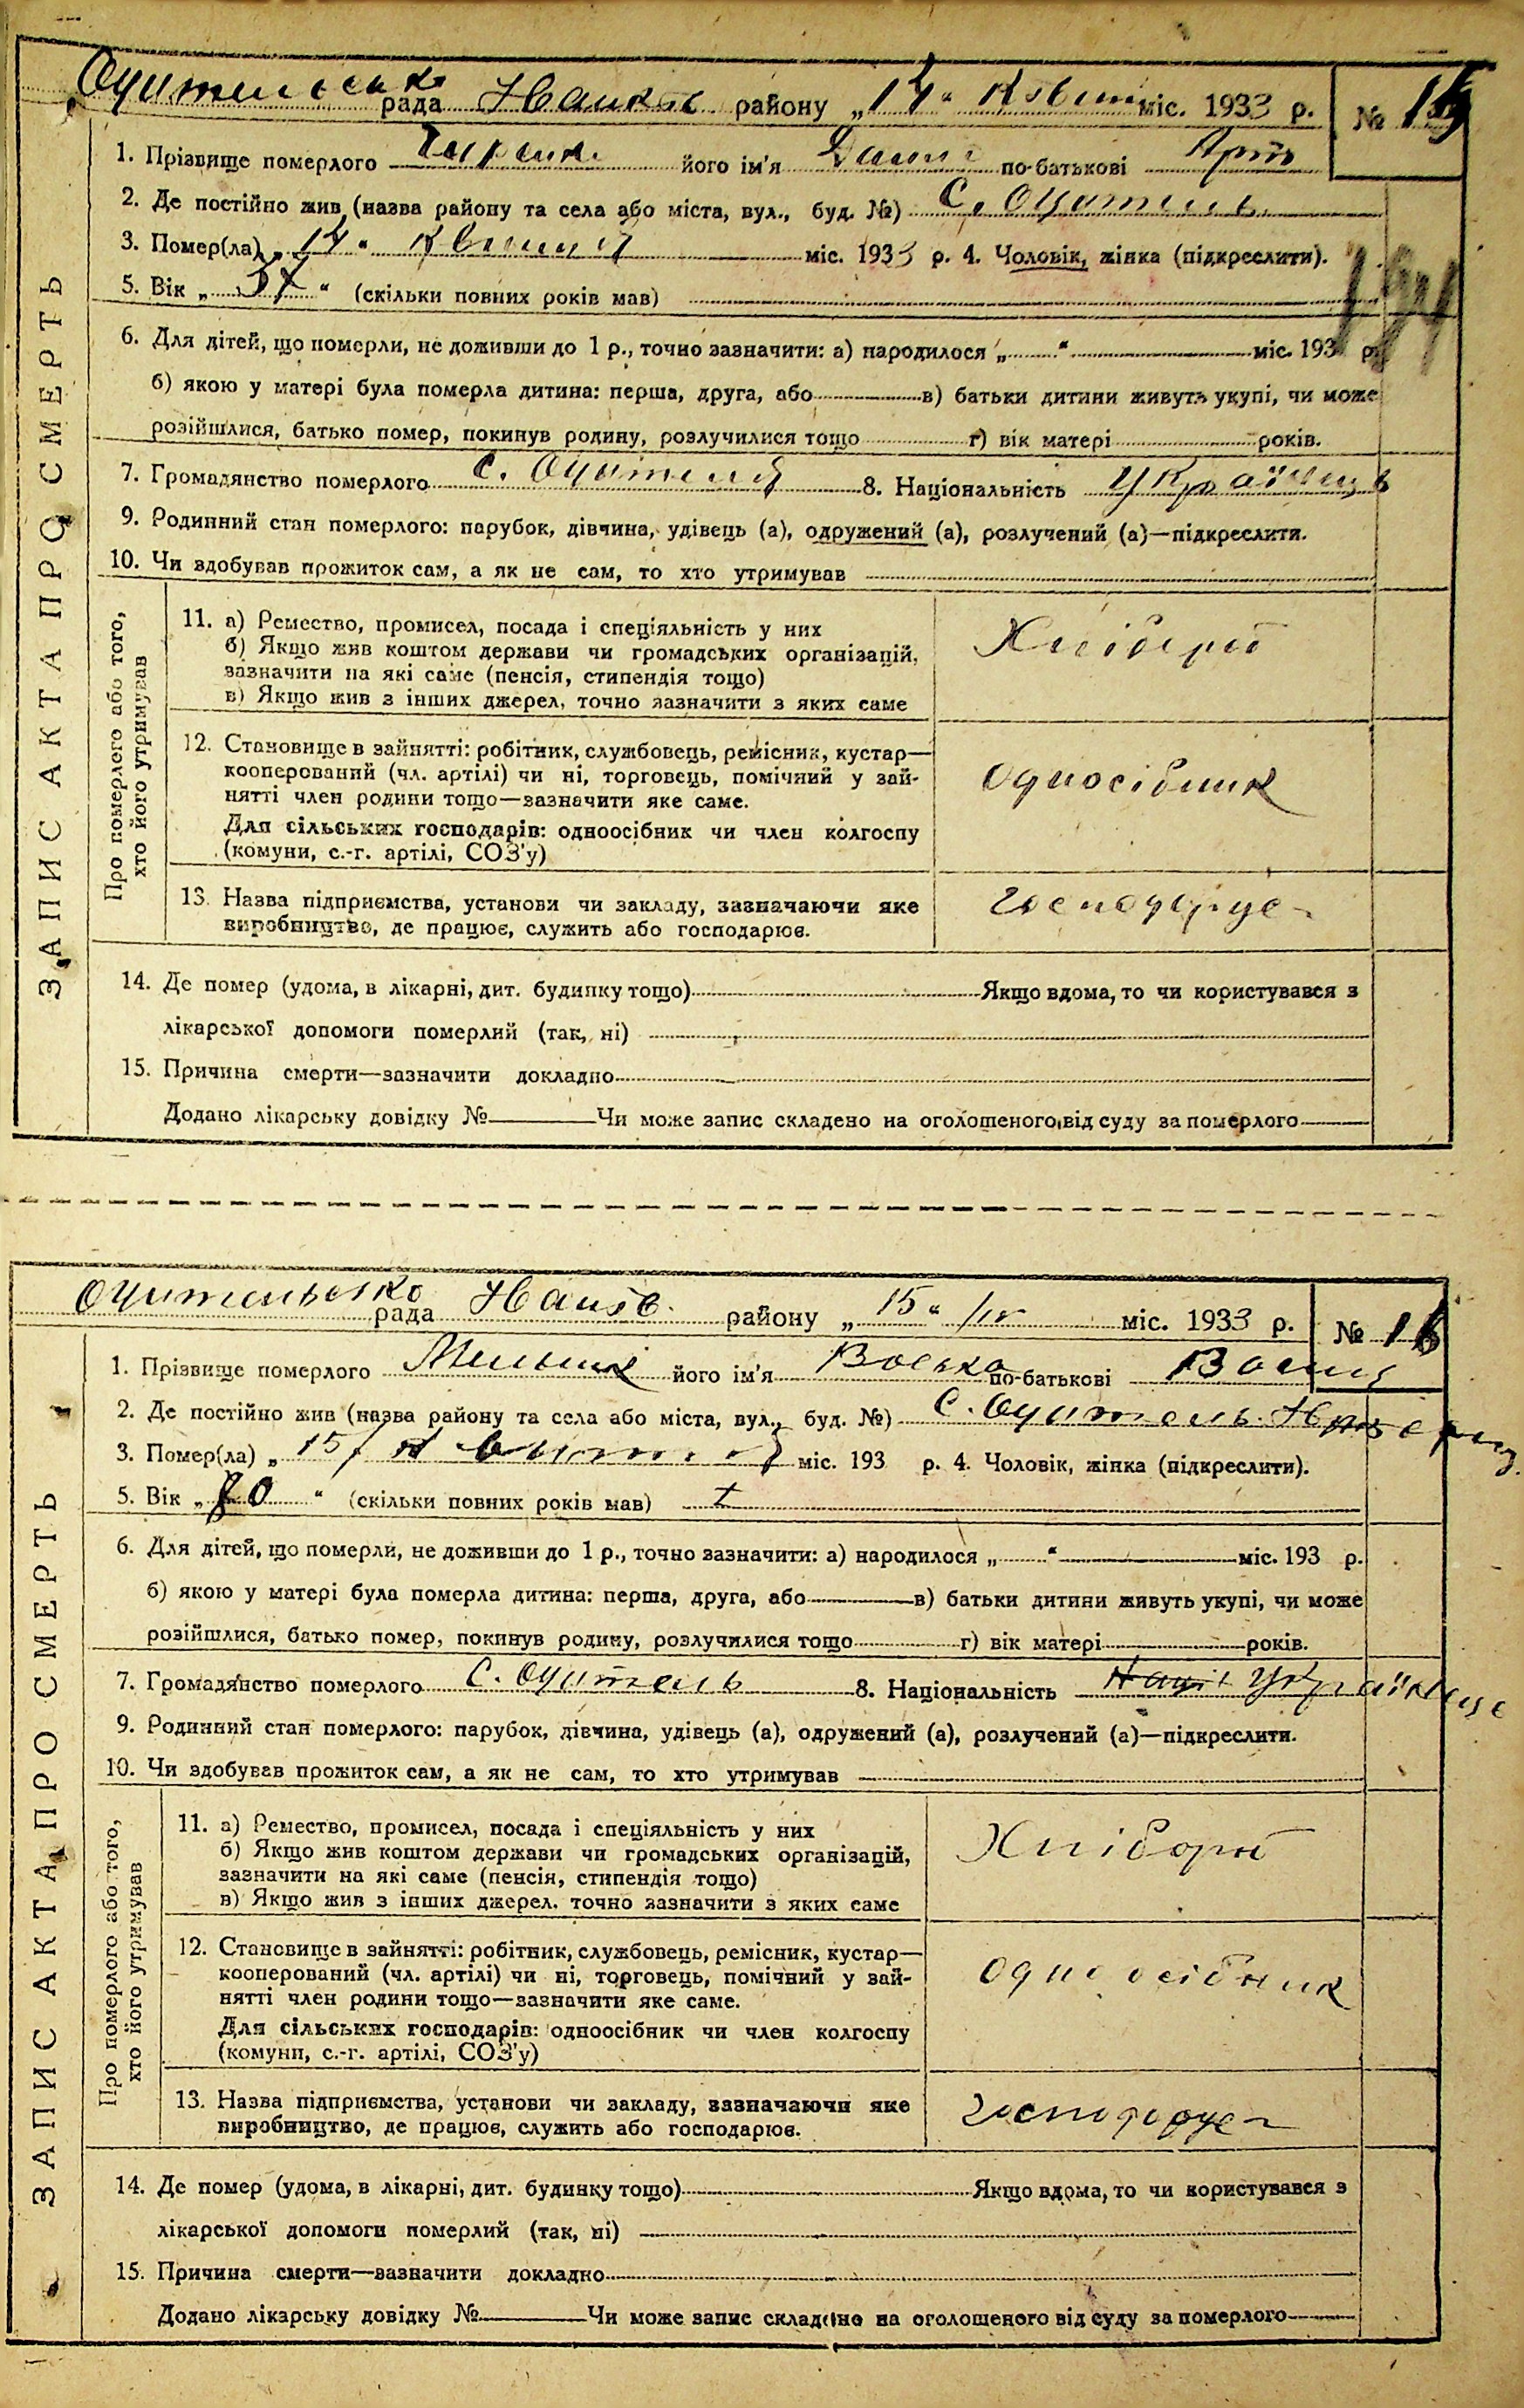 рада району „14“ міс. 1933 р. №
1. Прізвище померлого його ім'я по-батькові
2. Де постійно жив (назва району та села або міста, вул., буд. №) С. Оцитель
3. Помер(ла) „14“ міс. 1933 р. 4. Чоловік, жінка (підкреслити).
5. Вік „37“ (скільки повних років мав)
6. Для дітей, що померли, не доживши до 1 р., точно зазначити: а) народилося „ “ міс. 193 р.
б) якою у матері була померла дитина: перша, друга, або в) батьки дитини живуть укупі, чи може
розійшлися, батько помер, покинув родину, розлучилися тощо г) вік матері років.
7. Громадянство померлого С. 8. Національність українець
9. Родинний стан померлого: парубок, дівчина, удівець (а), одружений (а), розлучений (а)—підкреслити.
10. Чи здобував прожиток сам, а як не сам, то хто утримував
ЗАПИС АКТА ПРО СМЕРТЬ
Про померлего або того,
хто його утримував
11. а) Ремество, промисел, посада і спеціяльність у них
б) Якщо жив коштом держави чи громадських організацій,
зазначити на які саме (пенсія, стипендія тощо)
в) Якщо жив з інших джерел, точно зазначити з яких саме
Хлібороб
12. Становище в зайнятті: робітник, службовець, ремісник, кустар—
кооперований (чл. артілі) чи ні, торговець, помічний у зай-
нятті член родини тощо—зазначити яке саме.
Для сільських господарів: одноосібник чи член колгоспу
(комуни, с.-г. артілі, СОЗ'у)
Односібник
13. Назва підприємства, установи чи закладу, зазначаючи яке
виробництво, де працює, служить або господарює.
14. Де помер (удома, в лікарні, дит. будинку тощо) Якщо вдома, то чи користувався з
лікарської допомоги померлий (так, ні)
15. Причина смерти—зазначити докладно
Додано лікарську довідку № Чи може запис складено на оголошеного від суду за померлого
рада району „15“ міс. 1933 р. № 16
1. Прізвище померлого Мельник його ім'я по-батькові
2. Де постійно жив (назва району та села або міста, вул., буд. №) С. Оцитель
3. Помер(ла) „15 міс. 193 р. 4. Чоловік, жінка (підкреслити).
5. Вік „70“ (скільки повних років мав)
6. Для дітей, що померли, не доживши до 1 р., точно зазначити: а) народилося „ “ міс. 193 р.
б) якою у матері була померла дитина: перша, друга, або в) батьки дитини живуть укупі, чи може
розійшлися, батько помер, покинув родину, розлучилися тощо г) вік матері років.
7. Громадянство померлого С. Оцитель 8. Національність
9. Родинний стан померлого: парубок, дівчина, удівець (а), одружений (а), розлучений (а)—підкреслити.
10. Чи здобував прожиток сам, а як не сам, то хто утримував
ЗАПИС АКТА ПРО СМЕРТЬ
Про померлого або того,
хто його утримував
11. а) Ремество, промисел, посада і спеціяльність у них
б) Якщо жив коштом держави чи громадських організацій,
зазначити на які саме (пенсія, стипендія тощо)
в) Якщо жив з інших джерел, точно зазначити з яких саме
Хлібороб
12. Становище в зайнятті: робітник, службовець, ремісник, кустар—
кооперований (чл. артілі) чи ні, торговець, помічний у зай-
нятті член родини тощо—зазначити яке саме.
Для сільських господарів: одноосібник чи член колгоспу
(комуни, с.-г. артілі, СОЗ'у)
Одноосібник
13. Назва підприємства, установи чи закладу, зазначаючи яке
виробництво, де працює, служить або господарює.
14. Де помер (удома, в лікарні, дит. будинку тощо) Якщо вдома, то чи користувався з
лікарської допомоги померлий (так, ні)
15. Причина смерти—зазначити докладно
Додано лікарську довідку № Чи може запис складено на оголошеного від суду за померлого